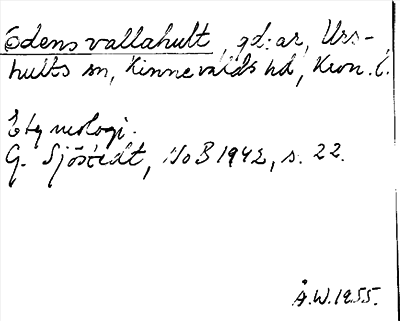 Ödensvallahult, gd:ar, Urs-
hults sn, Kinnevalds hd, Kron. l.
Etymologi.
G. Sjöstedt, NoB 1942, s. 22.
Å.W. 1955.